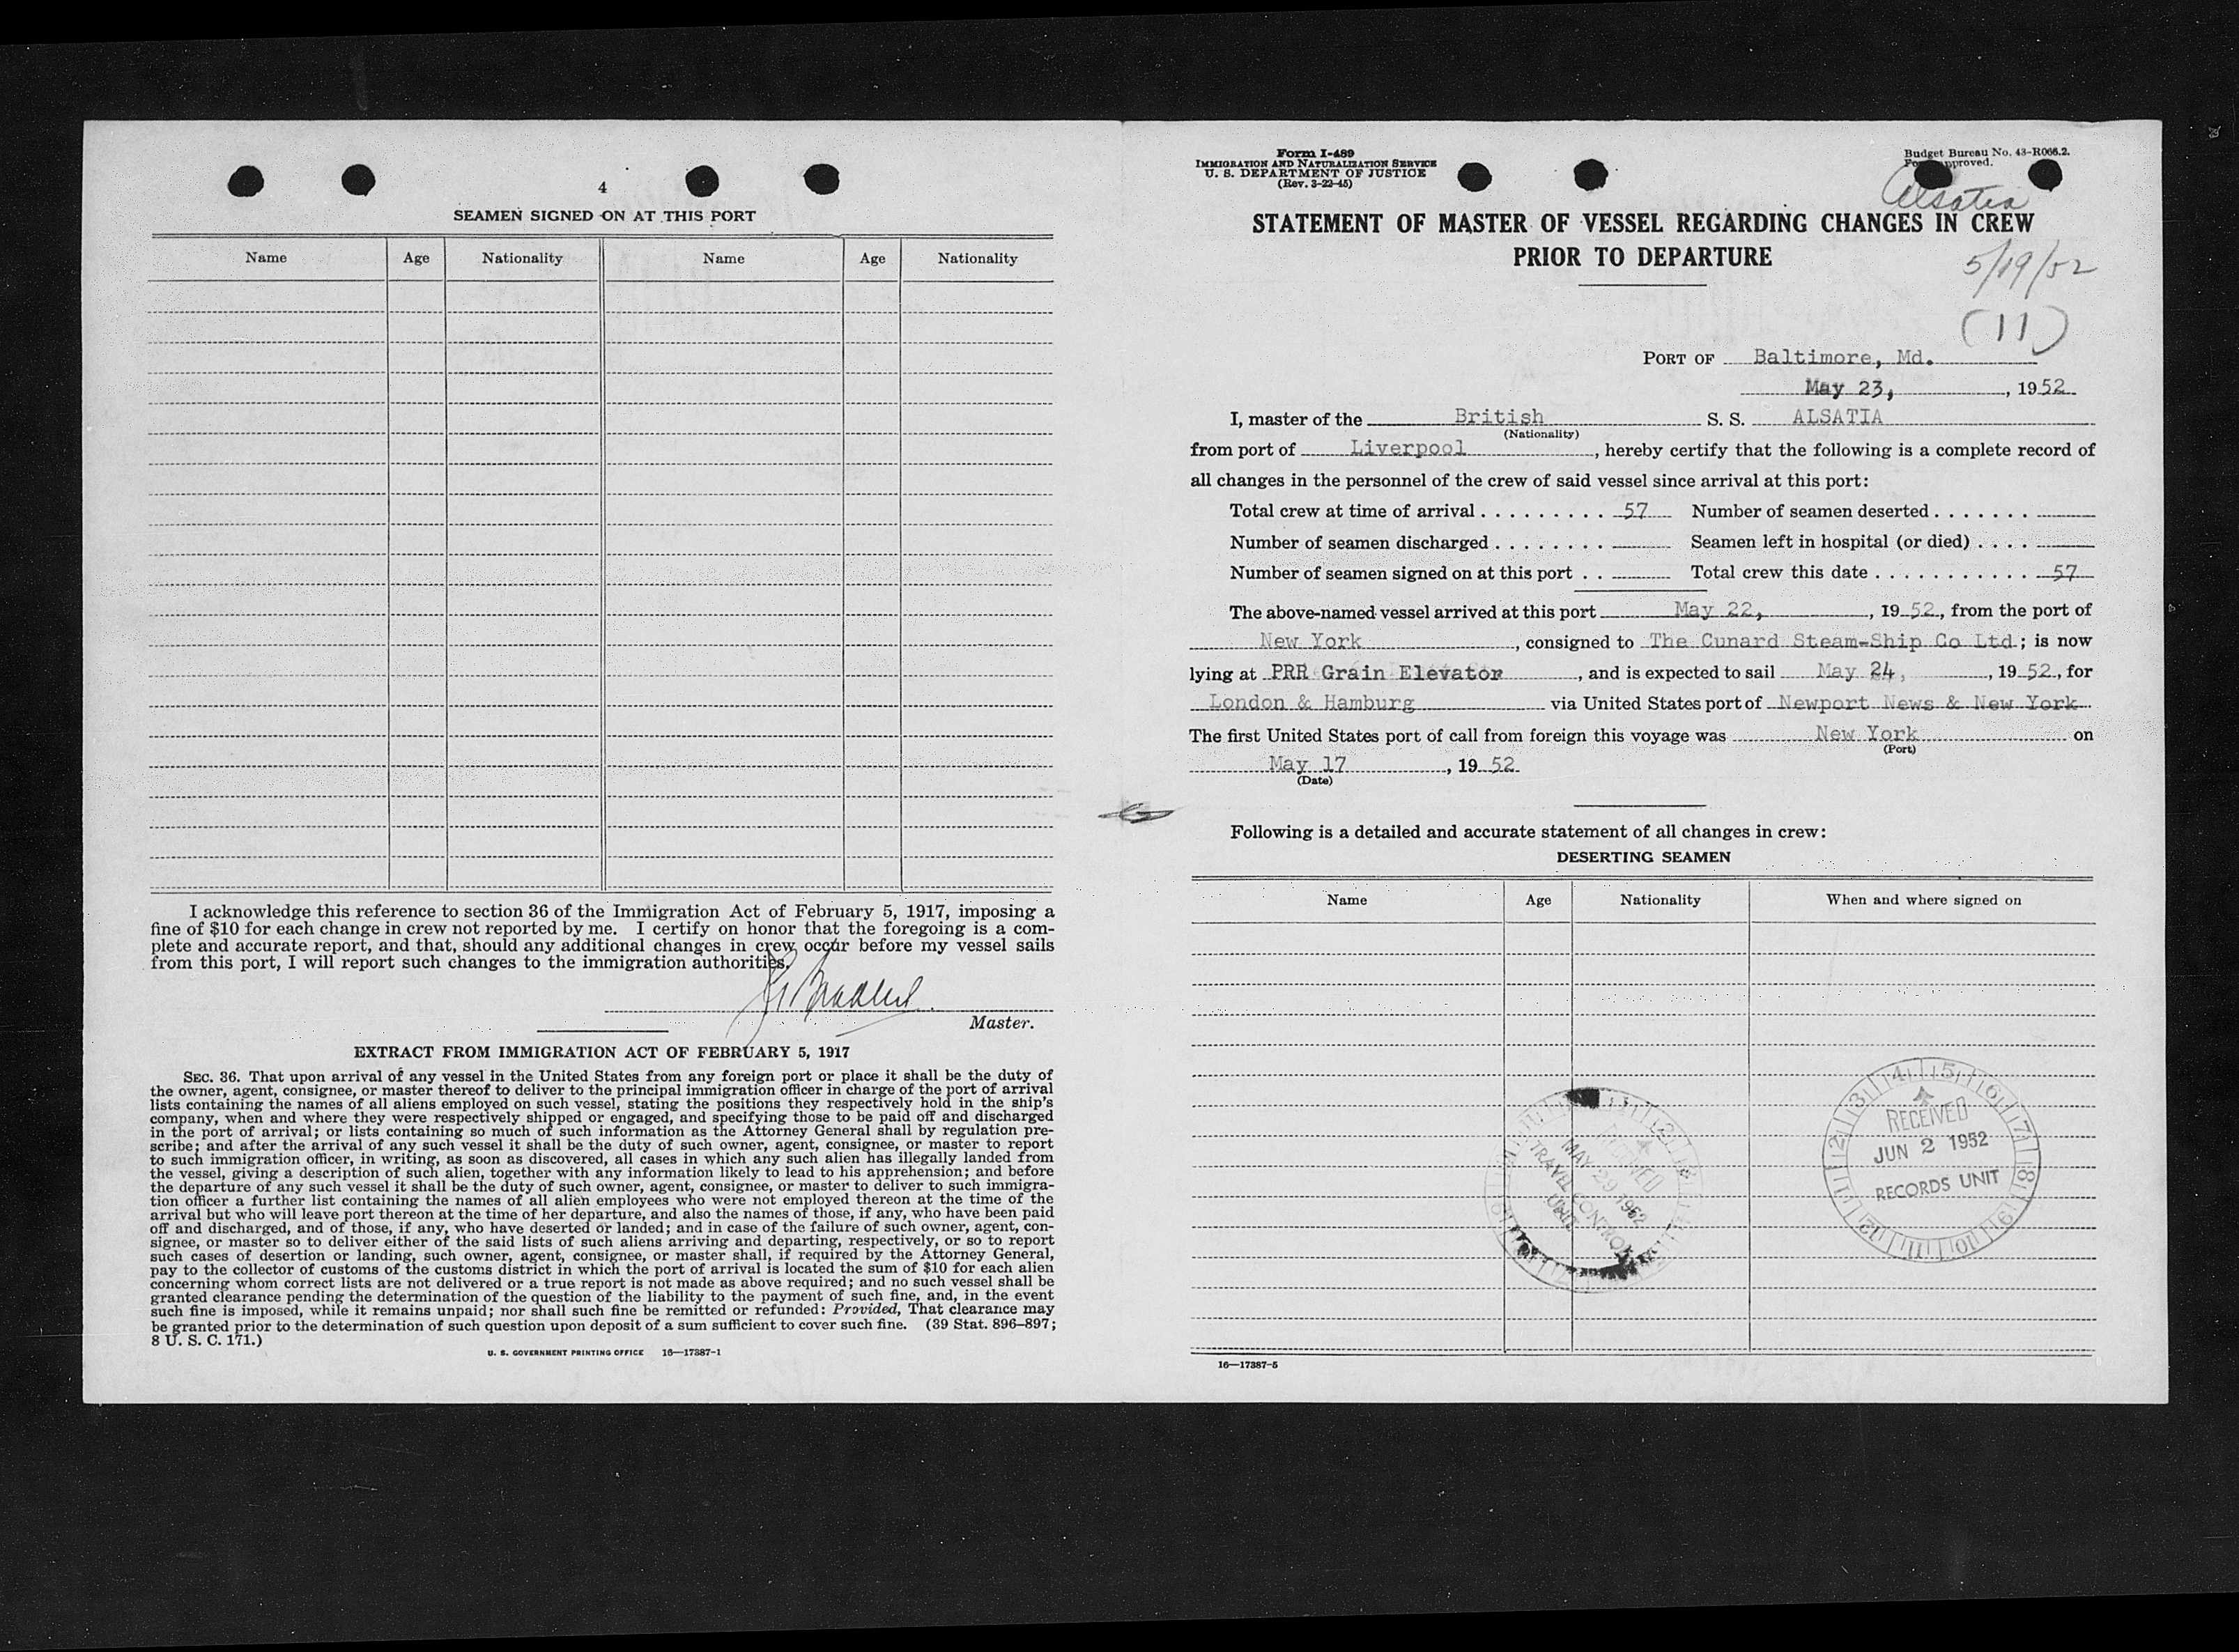 4
SEAMEN SIGNED ON AT THIS PORT
Name Age Nationality Name Age Nationality
I acknowledge this reference to section 36 of the Immigration Act of February 5, 1917, imposing a
fine of $10 for each change in crew not reported by me. I certify on honor that the foregoing is a com-
plete and accurate report, and that, should any additional changes in crew occur before my vessel sails
from this port, I will report such changes to the immigration authorities.
Master.
EXTRACT FROM IMMIGRATION ACT OF FEBRUARY 5, 1917
SEC. 36. That upon arrival of any vessel in the United States from any foreign port or place it shall be the duty of
the owner, agent, consignee, or master thereof to deliver to the principal immigration officer in charge of the port of arrival
lists containing the names of all aliens employed on such vessel, stating the positions they respectively hold in the ship's
company, when and where they were respectively shipped or engaged, and specifying those to be paid off and discharged
in the port of arrival; or lists containing so much of such information as the Attorney General shall by regulation pre-
scribe; and after the arrival of any such vessel it shall be the duty of such owner, agent, consignee, or master to report
to such immigration officer, in writing, as soon as discovered, all cases in which any such alien has illegally landed from
the vessel, giving a description of such alien, together with any information likely to lead to his apprehension; and before
the departure of any such vessel it shall be the duty of such owner, agent, consignee, or master to deliver to such immigra-
tion officer a further list containing the names of all alien employees who were not employed thereon at the time of the
arrival but who will leave port thereon at the time of her departure, and also the names of those, if any, who have been paid
off and discharged, and of those, if any, who have deserted or landed; and in case of the failure of such owner, agent, con-
signee, or master so to deliver either of the said lists of such aliens arriving and departing, respectively, or so to report
such cases of desertion or landing, such owner, agent, consignee, or master shall, if required by the Attorney General,
pay to the collector of customs of the customs district in which the port of arrival is located the sum of $10 for each alien
concerning whom correct lists are not delivered or a true report is not made as above required; and no such vessel shall be
granted clearance pending the determination of the question of the liability to the payment of such fine, and, in the event
such fine is imposed, while it remains unpaid; nor shall such fine be remitted or refunded: Provided, That clearance may
be granted prior to the determination of such question upon deposit of a sum sufficient to cover such fine. (39 Stat. 896–897;
8 U. S. C. 171.)
U. S. GOVERNMENT PRINTING OFFICE 16—17387-1
Form I-489
IMMIGRATION AND NATURALIZATION SERVICE
U. S. DEPARTMENT OF JUSTICE
(Rev. 3-22-45)
Budget Bureau No. 43-R066.2.
approved.
Alsatia
STATEMENT OF MASTER OF VESSEL REGARDING CHANGES IN CREW
PRIOR TO DEPARTURE
5/19/52
(11)
PORT OF Baltimore, Md.
May 23, , 1952
I, master of the British S. S. ALSATIA
(Nationality)
from port of Liverpool , hereby certify that the following is a complete record of
all changes in the personnel of the crew of said vessel since arrival at this port:
Total crew at time of arrival . . . . . . . . . 57 Number of seamen deserted . . . . . . .
Number of seamen discharged . . . . . . . . Seamen left in hospital (or died) . . . .
Number of seamen signed on at this port . . Total crew this date . . . . . . . . . . . . 57
The above-named vessel arrived at this port May 22, , 19 52, from the port of
New York , consigned to The Cunard Steam-Ship Co Ltd ; is now
lying at PRR Grain Elevator , and is expected to sail May 24, , 19 52, for
London & Hamburg via United States port of Newport News & New York
The first United States port of call from foreign this voyage was New York on
(Port)
May 17 , 19 52
(Date)
Following is a detailed and accurate statement of all changes in crew:
DESERTING SEAMEN
Name Age Nationality When and where signed on
MAY 29 1952
TRAVEL CONTROL
UNIT
RECEIVED
JUN 2 1952
RECORDS UNIT
16—17387-5